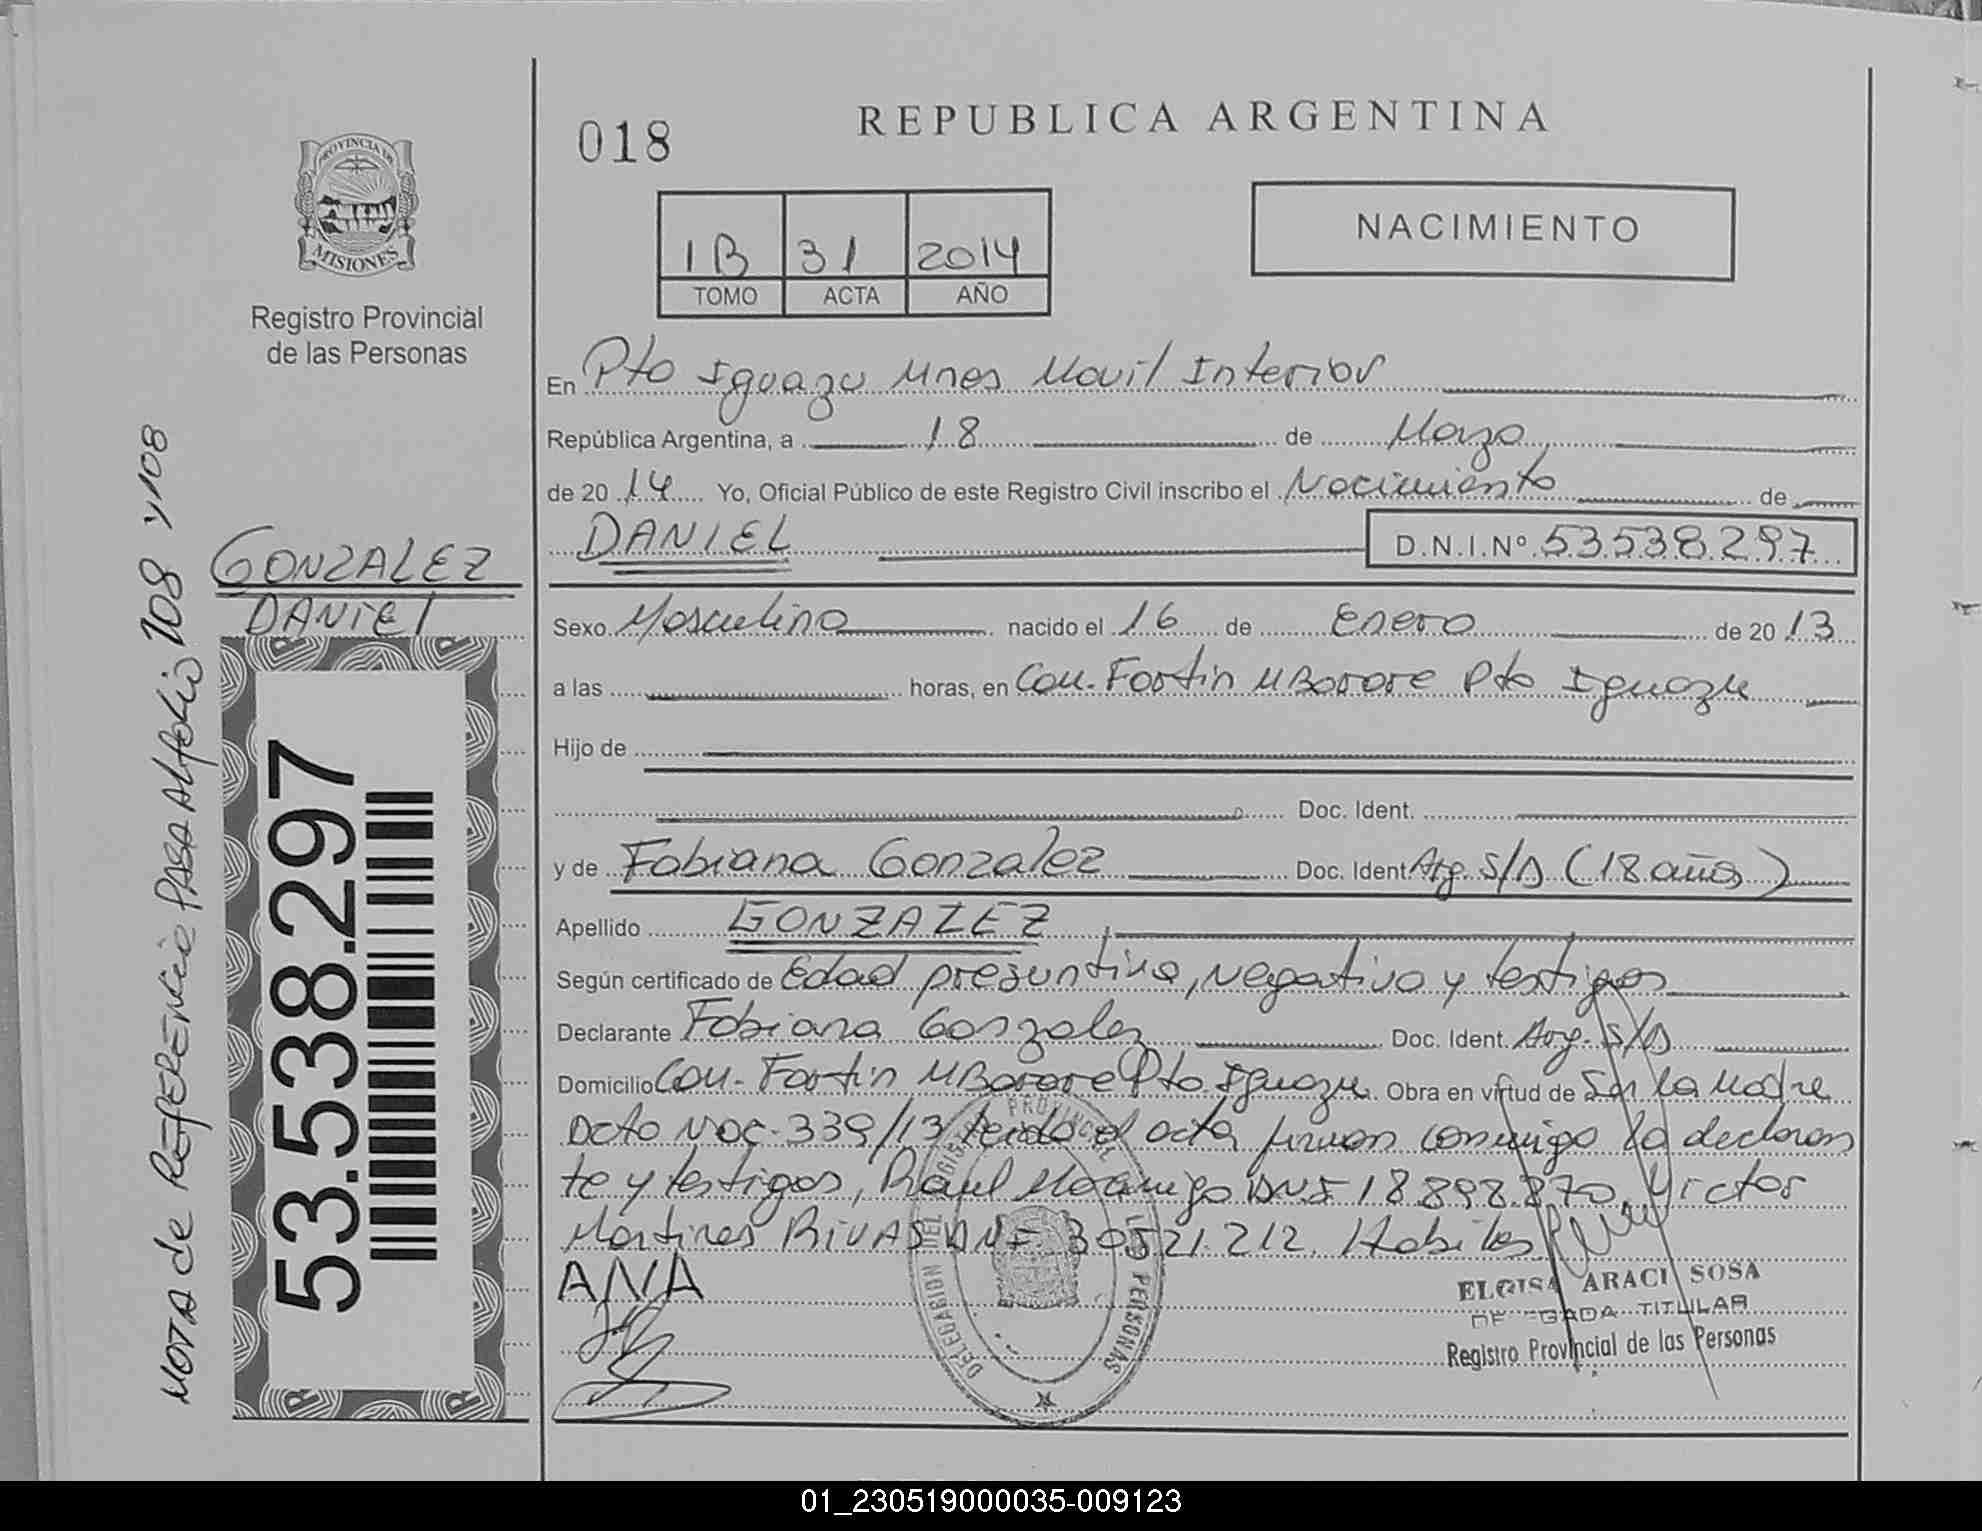 018
REPUBLICA ARGENTINA
PROVINCIA DE
MISIONES
Registro Provincial
de las Personas
1B 31 2014
TOMO ACTA AÑO
NACIMIENTO
En Pto Iguazu Mnes Movil Interior
República Argentina, a 18 de Marzo
de 20 14 Yo, Oficial Público de este Registro Civil inscribo el Nacimiento de
DANIEL D.N.I.Nº 53538297
GONZALEZ
DANIEL
Sexo Masculino nacido el 16 de Enero de 20 13
a las horas, en Com. Fortin MBorore Pto Iguazu
Hijo de
Doc. Ident.
y de Fabiana Gonzalez Doc. Ident Arg. S/D (18 años)
Apellido GONZALEZ
Según certificado de Edad presuntiva, Negativo y testigos
Declarante Fabiana Gonzalez Doc. Ident. Arg. S/D
Domicilio Com. Fortin MBorore Pto Iguazu. Obra en virtud de Ser la Madre
Dcto Nac. 339/13 leida el acta firman conmigo la declaran
te y testigos, Raul DNI 18.898.270, Victor
Martines RIVAS DNI 30521.212. Habiles
ANA
DELEGACION DEL REGISTRO PROVINCIAL DE LAS PERSONAS
ELOISA ARACI SOSA
DELEGADA TITULAR
Registro Provincial de las Personas
53.538.297
NOTA de REFERENCIA PASA Al folio 108 y 108
01_230519000035-009123